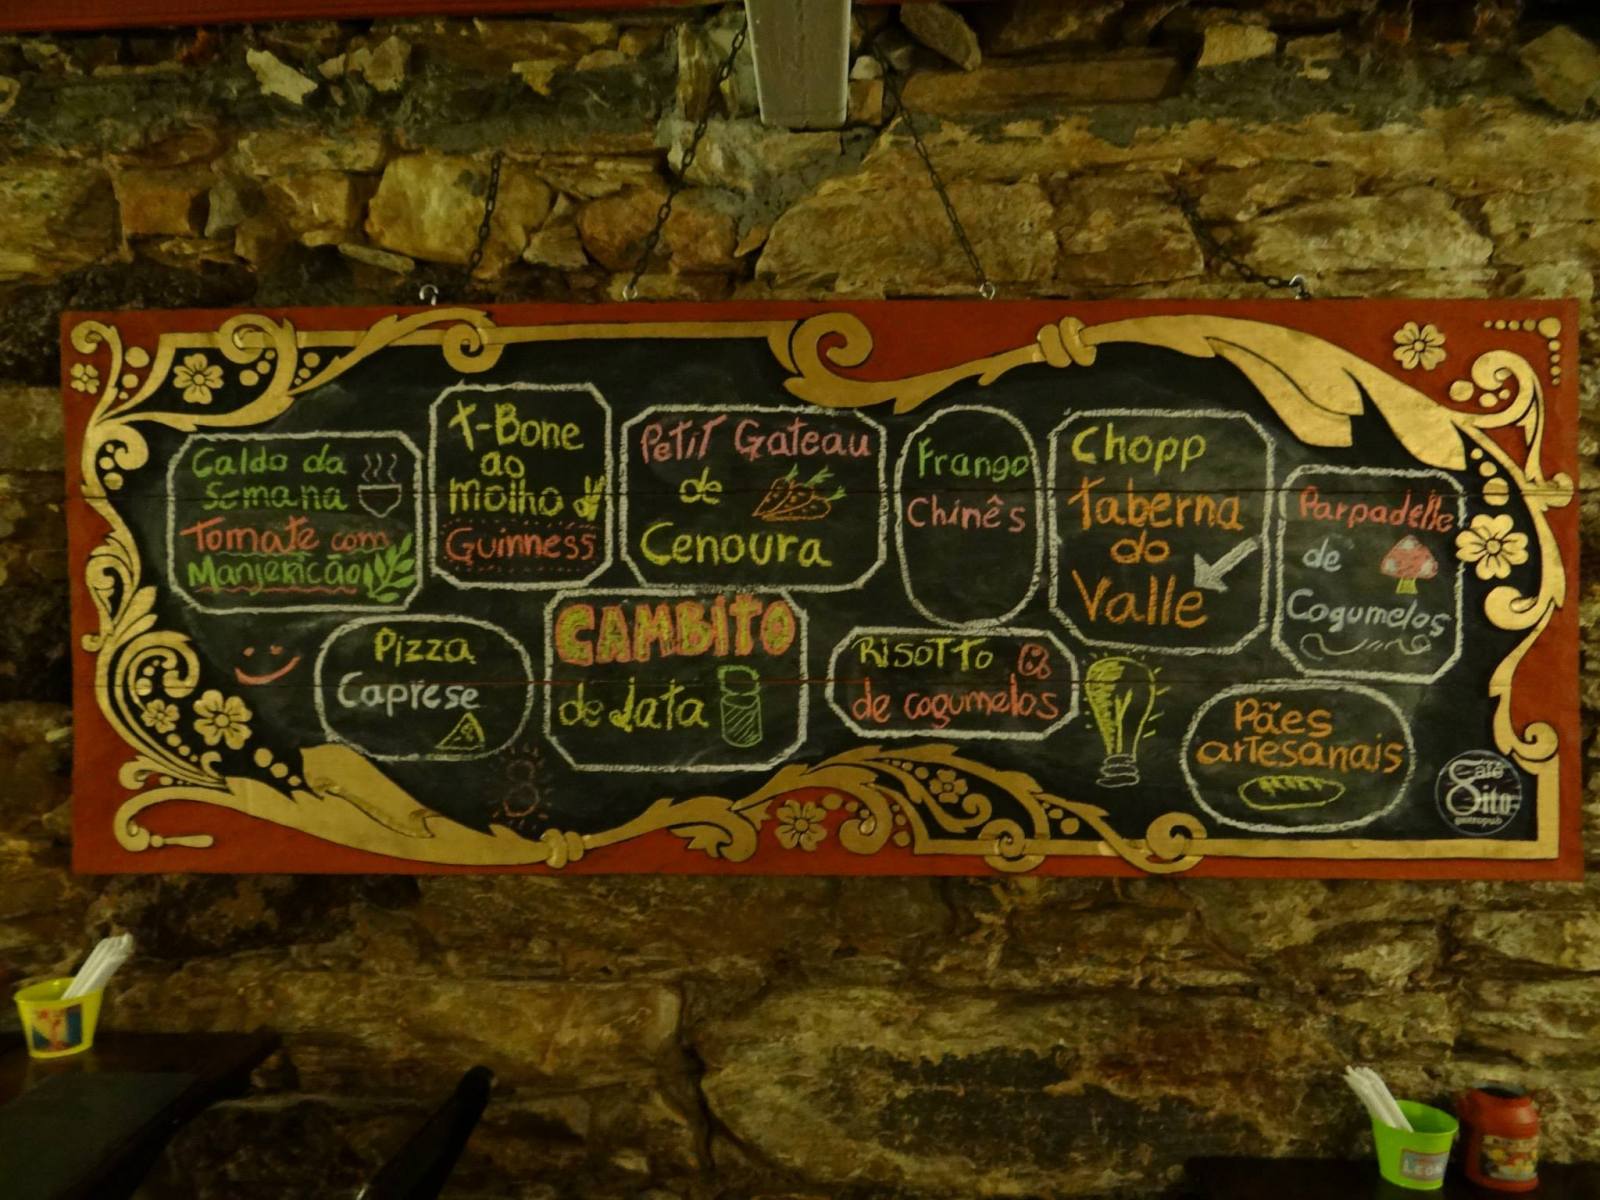 Caldo da
Semana
Tomate com
Manjericão
T-Bone
ao
molho
Guinness
Petit Gateau
de
Cenoura
Frango
Chinês
Chopp
Taberna
do
Valle
Parpadelle
de
Cogumelos
Pizza
Caprese
CAMBITO
de Lata
Risotto
de cogumelos
Pães
artesanais
Café
8ito
gastropub
8